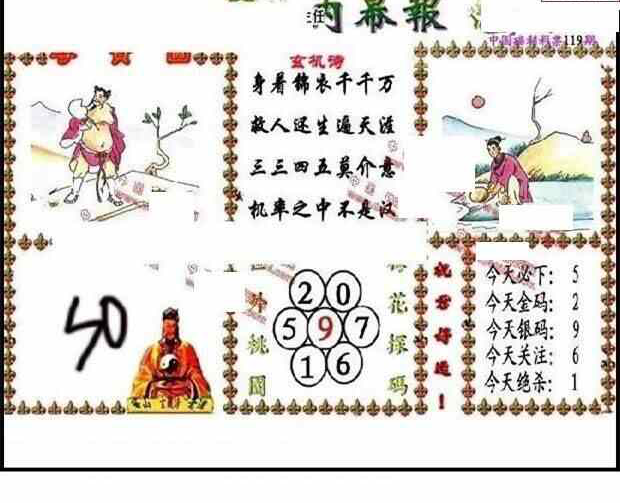 主任
内幕報
中国彩封档案119期
玄机诗
身着锦衣千千万
故人还生遍天涯
三三四五莫介意
机率之中不是汉
50
外桃園
2 0
5 9 7
1 6
花探碼
祝君好运!
今天必下: 5
今天金码: 2
今天银码: 9
今天关注: 6
今天绝杀: 1